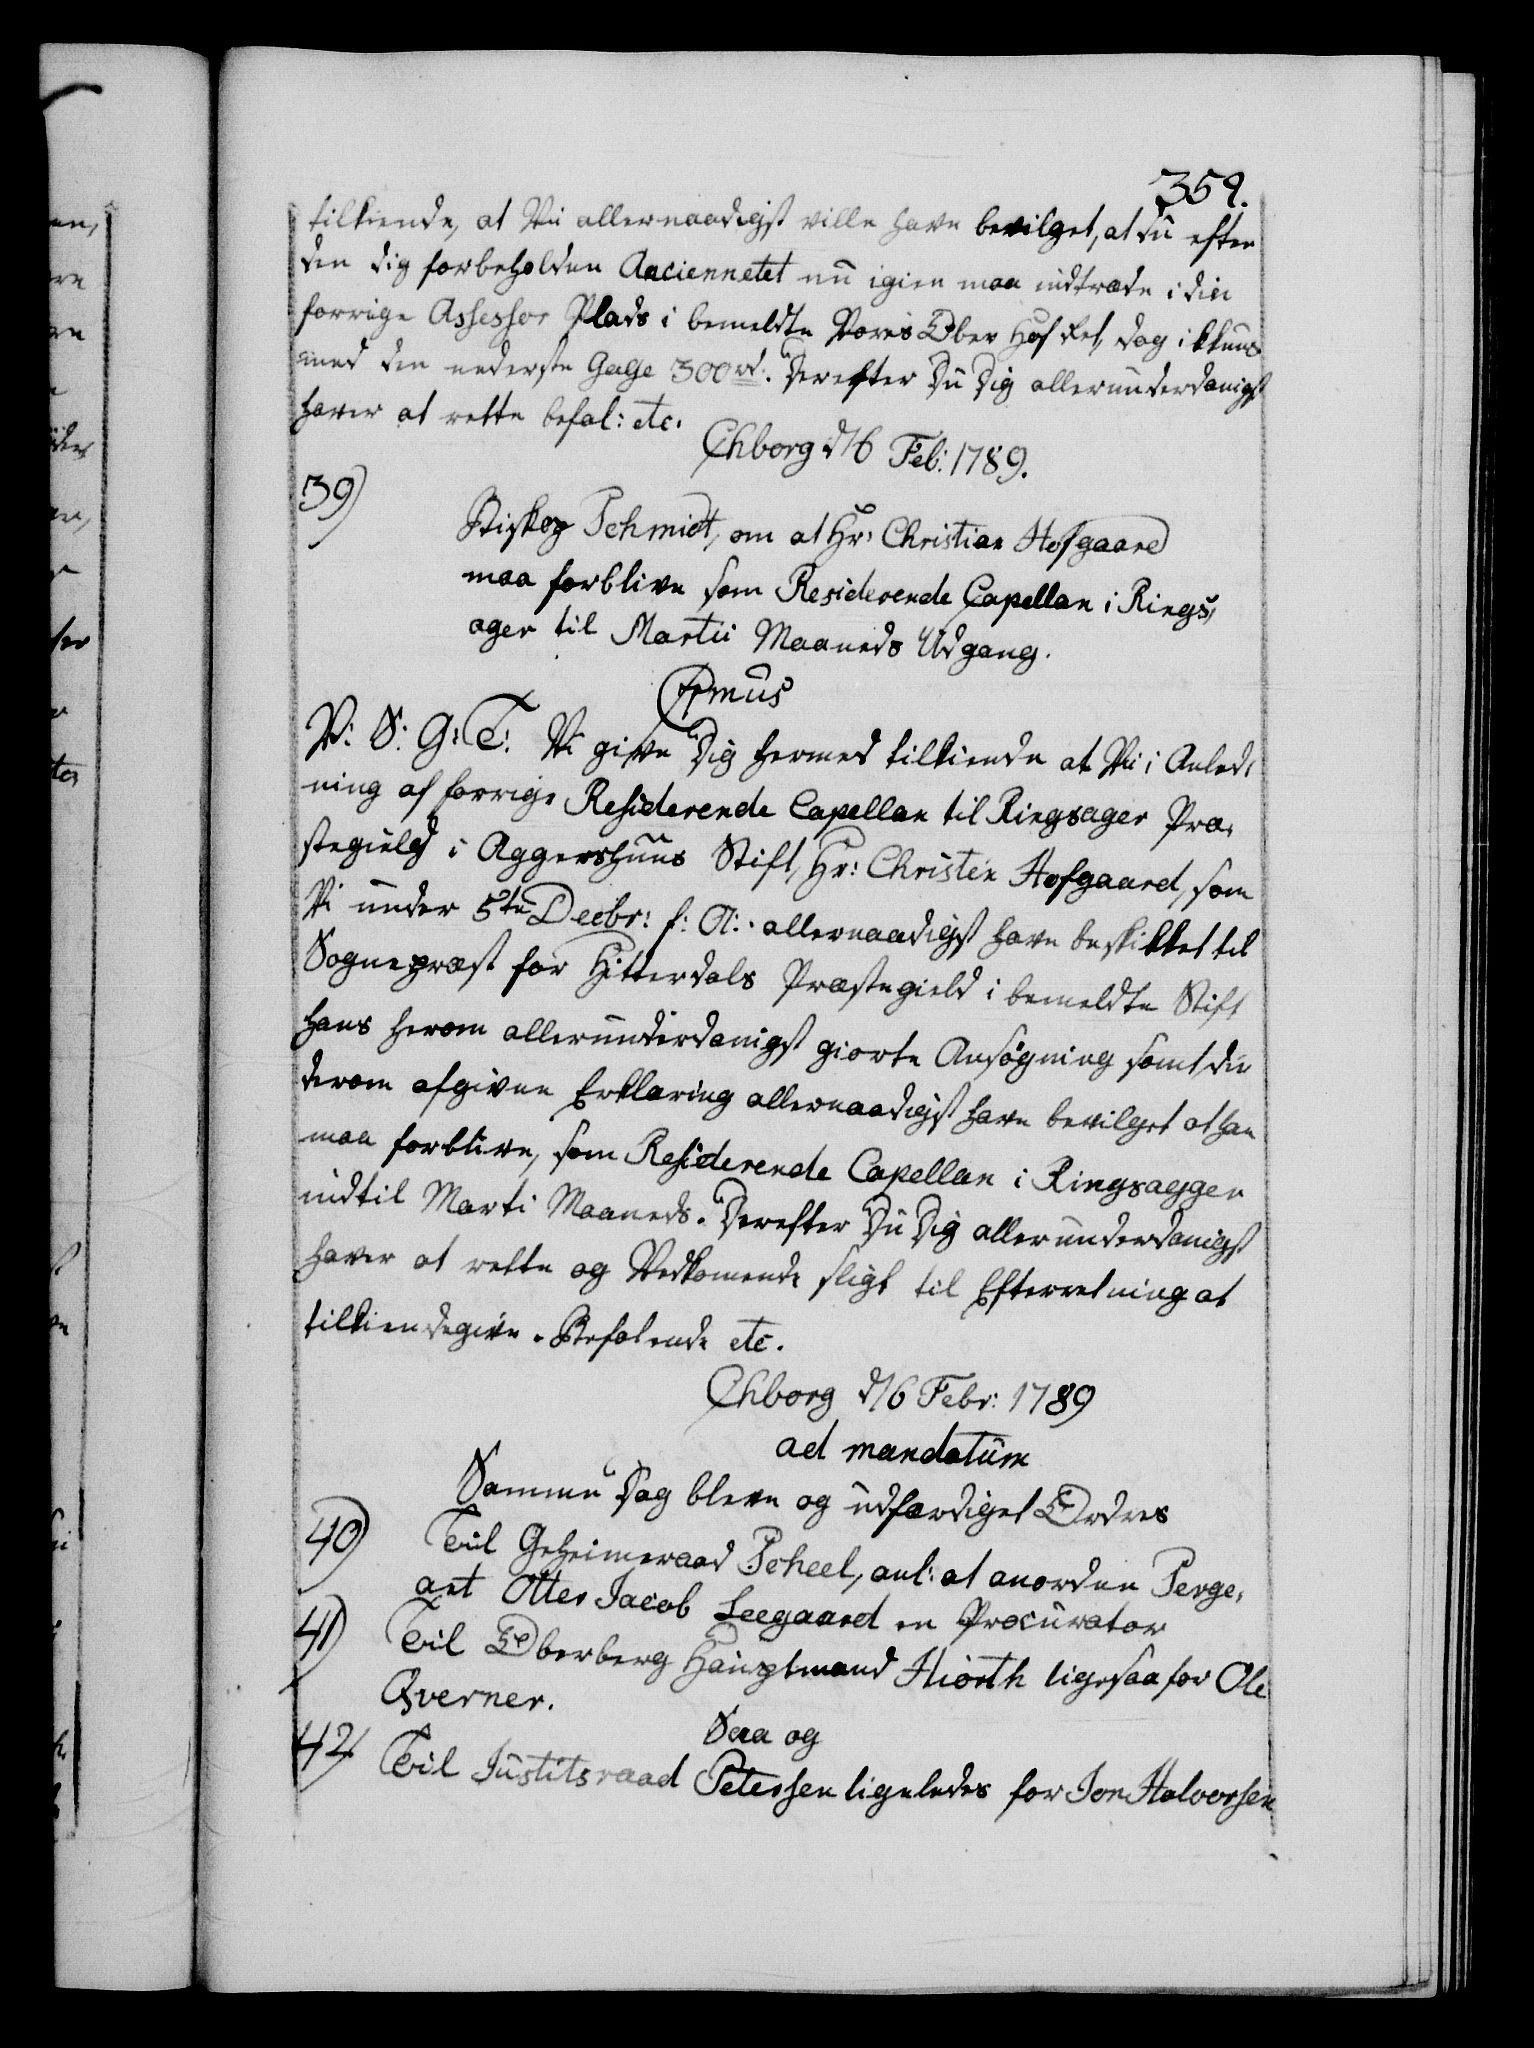 359.
tilkiende, at Vii allernaadigst ville have bevilget, at du efter
den dig forbeholden Anciennetet nu igien maa indtræde i din
forrige Assessor Plads i bemeldte Vores Ober Hof Ret, dog ikkuns
med den nederste Gage 300 rd. Derefter Du Dig allerunderdanigst
haver at rette befal: etc.
Chborg d 6 Feb: 1789.
39)
Biskop Schmidt, om at Hr: Christian Hofgaard
maa forblive som Residerende Capellan i Rings,
ager til Martii Maaneds Udgang.
V: S: G: T: Vi give Dig hermed tilkiende at Vii i Anled,
ning af forrige Residerende Capellan til Ringsager Præ,
stegield i Aggershuus Stift, Hr: Christen Hofgaard, som
Vi under 5te Decbr: f: A: allernaadigst have beskikket til
Sognepræst for Hitterdals Præstegield i bemeldte Stift
hans herom allerunderdanigst giorte Ansøgning samt din
derom afgivne Erklæring allernaadigst have bevilget at han
maa forblive, som Residerende Capellan i Ringsagger
indtil Marti Maaneds. Derefter Du Dig allerunderdanigst
haver at rette og Vedkomende sligt til Efterretning at
tilkiendegive. Befalende etc.
Chborg d 6 Febr: 1789
ad mandatum
Samme Dag bleve og udfærdiget Ordres
40) Til Geheimeraad Scheel, anl: at anordne Serge,
ant Otter Jacob Leegaard en Procurator
41) Til Oberberg Hauptmand Hiorth ligesaa for Ole
Qverner.
Saa og
42) Til Justitsraad Petersen ligeledes for Jon Halvorsen